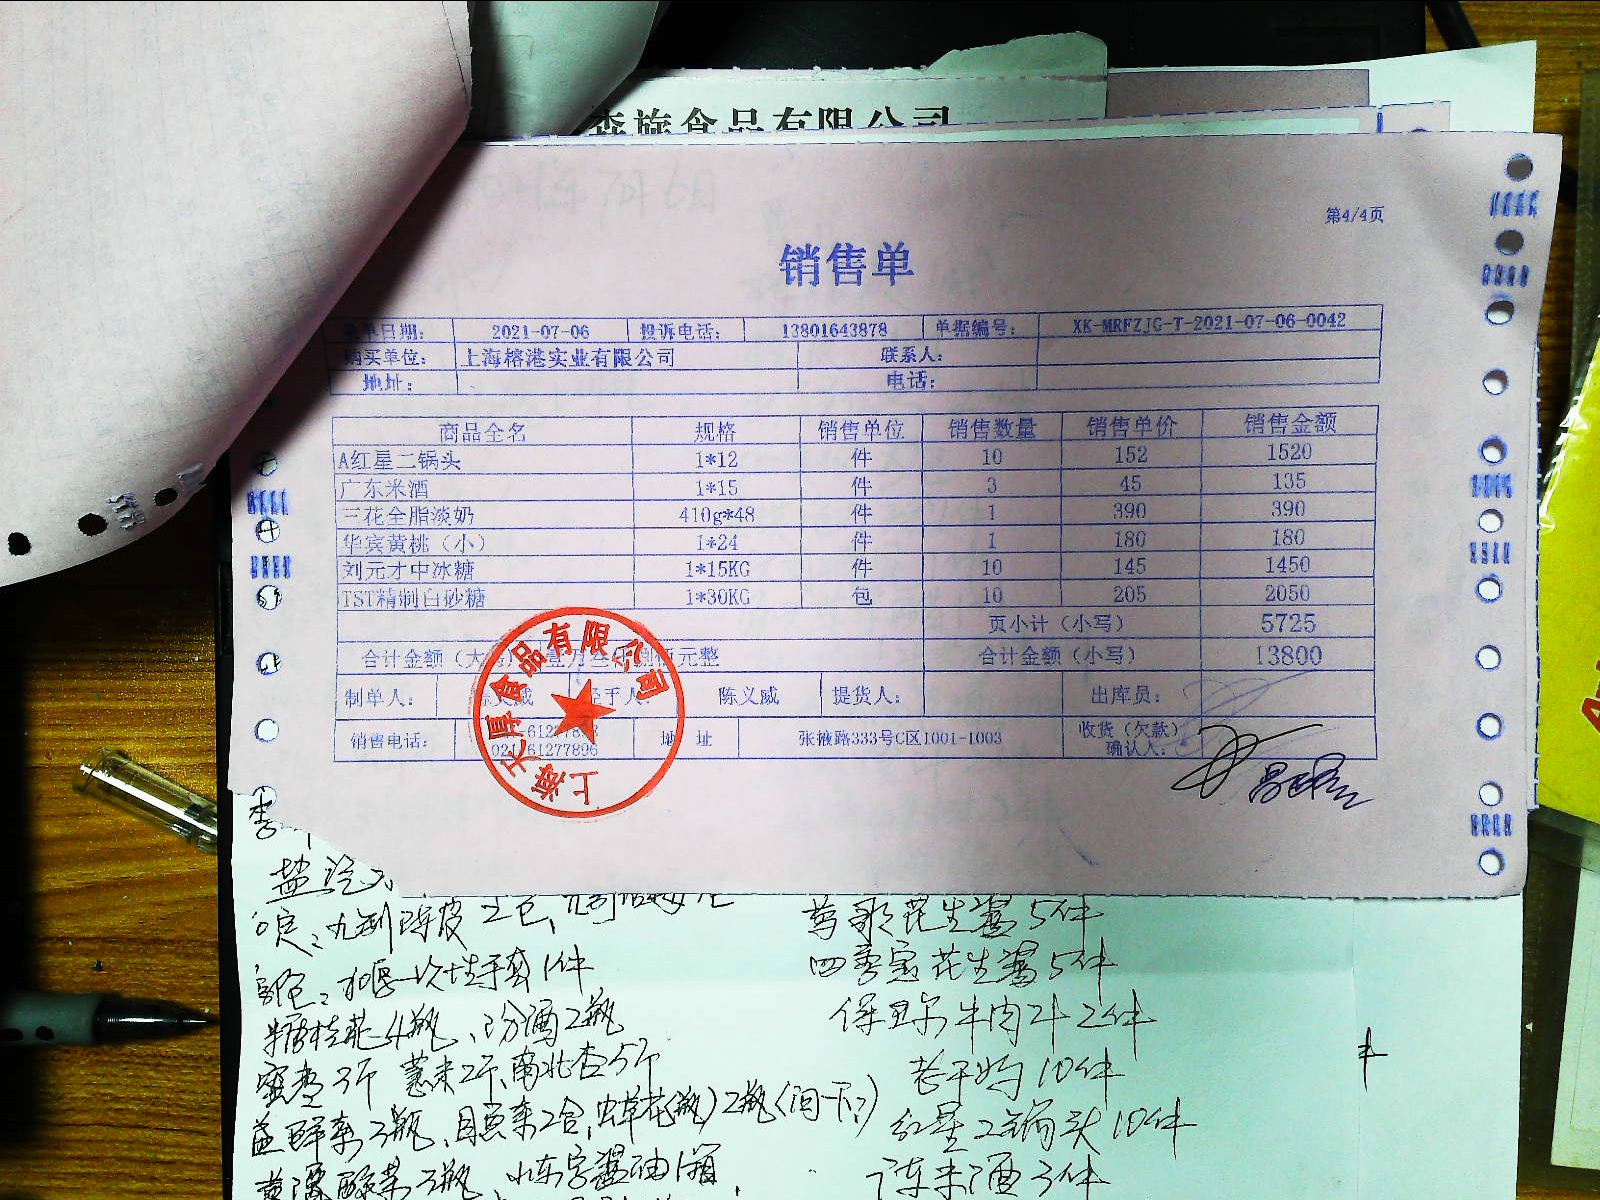 食品有限公司
第4/4页
销售单
单日期： 2021-07-06 投诉电话： 13801643878 单据编号： XK-MRFZJG-T-2021-07-06-0042
购买单位： 上海榕港实业有限公司 联系人：
地址： 电话：
商品全名 规格 销售单位 销售数量 销售单价 销售金额
A红星二锅头 1*12 件 10 152 1520
广东米酒 1*15 件 3 45 135
三花全脂淡奶 410g*48 件 1 390 390
华宾黄桃（小） 1*24 件 1 180 180
刘元才中冰糖 1*15KG 件 10 145 1450
TST精制白砂糖 1*30KG 包 10 205 2050
页小计（小写） 5725
合计金额（大 壹万叁仟捌佰元整 合计金额（小写） 13800
制单人： 陈义威 经手人： 陈义威 提货人： 出库员：
销售电话： 021-61277896 地 址 张掖路333号C区1001-1003 收货（欠款）
确认人：
上海天厚食品有限公司
盐汽水
九制陈皮2包，
一次性手套1件
糖桂花4瓶、汾酒2瓶
蜜枣3斤 薏米2斤、南北杏5斤
3瓶、 2盒，虫草花(瓶)2瓶
酸菜3瓶、 酱油1箱
莺歌花生酱5件
四季宝花生酱5件
保卫尔牛肉汁2件
老干妈10件
红星二锅头10件
广东米酒3件